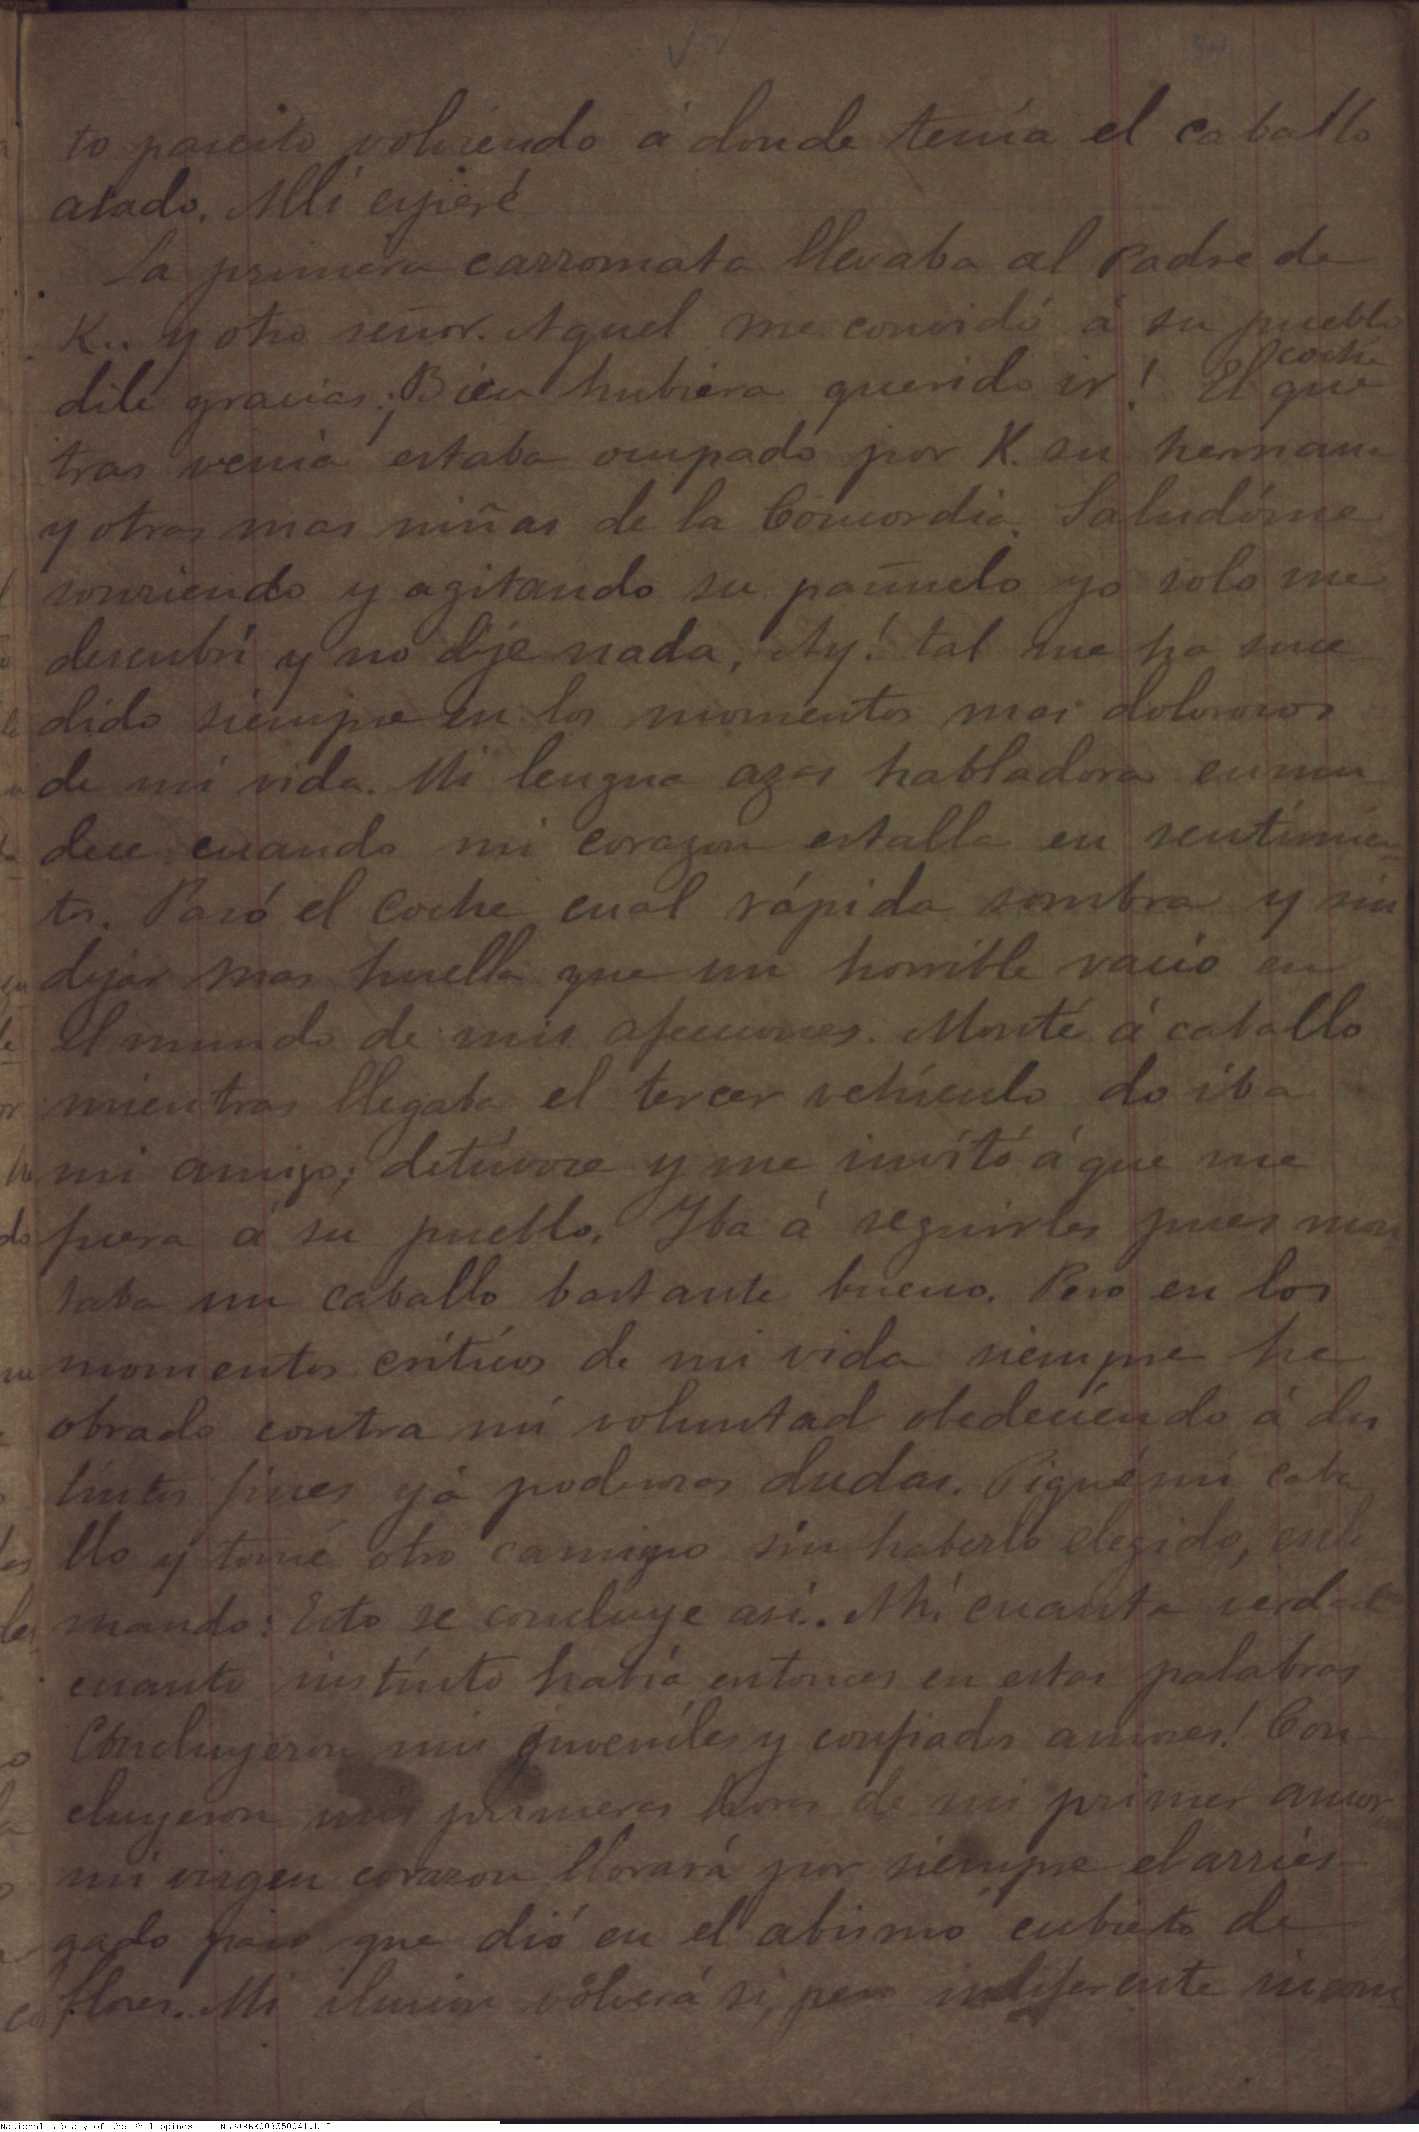 to paseito volviendo á donde tenía el caballo
atado. Allí esperé
La primera carromata llevaba al Padre de
K.. y otro señor. Aquel me convidó á su pueblo
dile gracias; ¡Bien hubiera querido ir! El coche que
tras venia estaba ocupado por K. su hermana
y otras mas niñas de la Concordia. Saludóme
sonriendo y agitando su pañuelo yo solo me
descubrí y no dije nada, Ay! tal me ha suce
dido siempre en los momentos mas dolorosos
de mi vida. Mi lengua azas habladora enmu
dece cuando mi corazon estalla en sentimien-
tos. Pasó el coche cual rápida sombra y sin
dejar mas huella que un horrible vacio en
el mundo de mis afecciones. Monté á caballo
mientras llegaba el tercer vehículo do iba
mi amigo; detúvose y me invitó á que me
fuera á su pueblo. Iba á seguirles pues mon
taba un caballo bastante bueno. Pero en los
momentos críticos de mi vida siempre he
obrado contra mi voluntad obedeciendo á dis
tintos fines y á poderosas dudas. Piqué mi caba
llo y tomé otro camino sin haberlo elegido, escla
mando: Esto se concluye asi.. Ah! cuanta verdad
cuanto instinto había entonces en estas palabras
Concluyeron mis juveniles y confiados amores! Con-
cluyeron mis primeras horas de mi primer amor
mi virgen corazon llorará por siempre el arries-
gado paso que dió en el abismo cubierto de
flores. Mi ilusion volverá si, pero indiferente incom
National Library of the Philippines